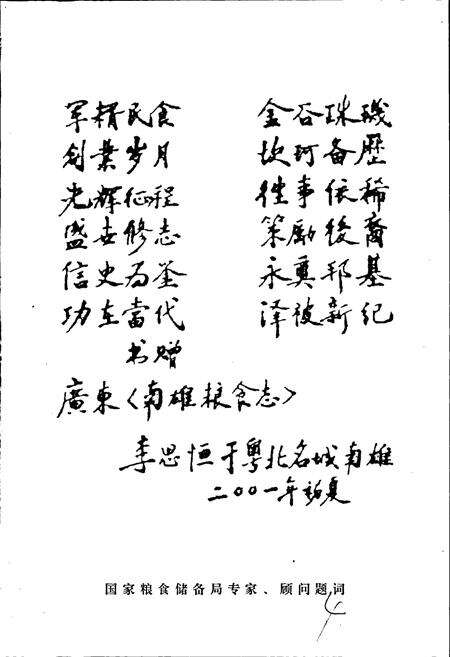 军糈民食 金谷珠玑
创业岁月 坎坷备歷
光辉征程 往事依稀
盛世修志 策励後裔
信史为鉴 永奠邦基
功在當代 泽被新纪
书赠
廣東〈南雄粮食志〉
李思恒于粤北名城南雄
二〇〇一年初夏
国家粮食储备局专家、顾问题词